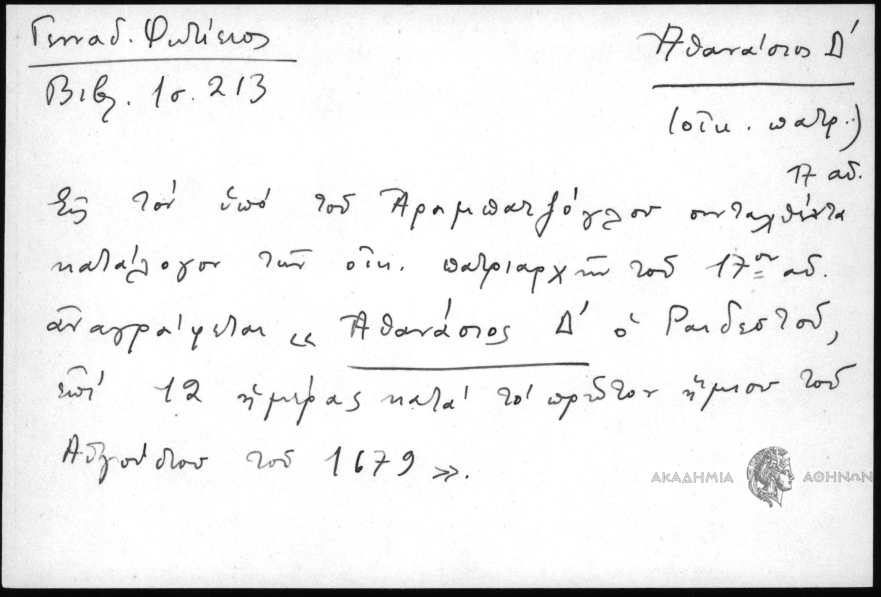 Γενναδ. Φωτίειος
Βιβλ. 1σ. 213
Ἀθανάσιος Δ΄
(οἰκ. πατρ.)
17 αἰ.
Εἰς τὸν ὑπὸ τοῦ Ἀραμπατζόγλου συνταχθέντα
κατάλογον τῶν οἰκ. πατριαρχῶν τοῦ 17ου αἰ.
ἀναγράφεται « Ἀθανάσιος Δ΄ ὁ Ραιδεστοῦ,
ἐπὶ 12 ἡμέρας κατὰ τὸ πρῶτον ἥμισυ τοῦ
Αὐγούστου τοῦ 1679 ».
ΑΚΑΔΗΜΙΑ ΑΘΗΝΩΝ